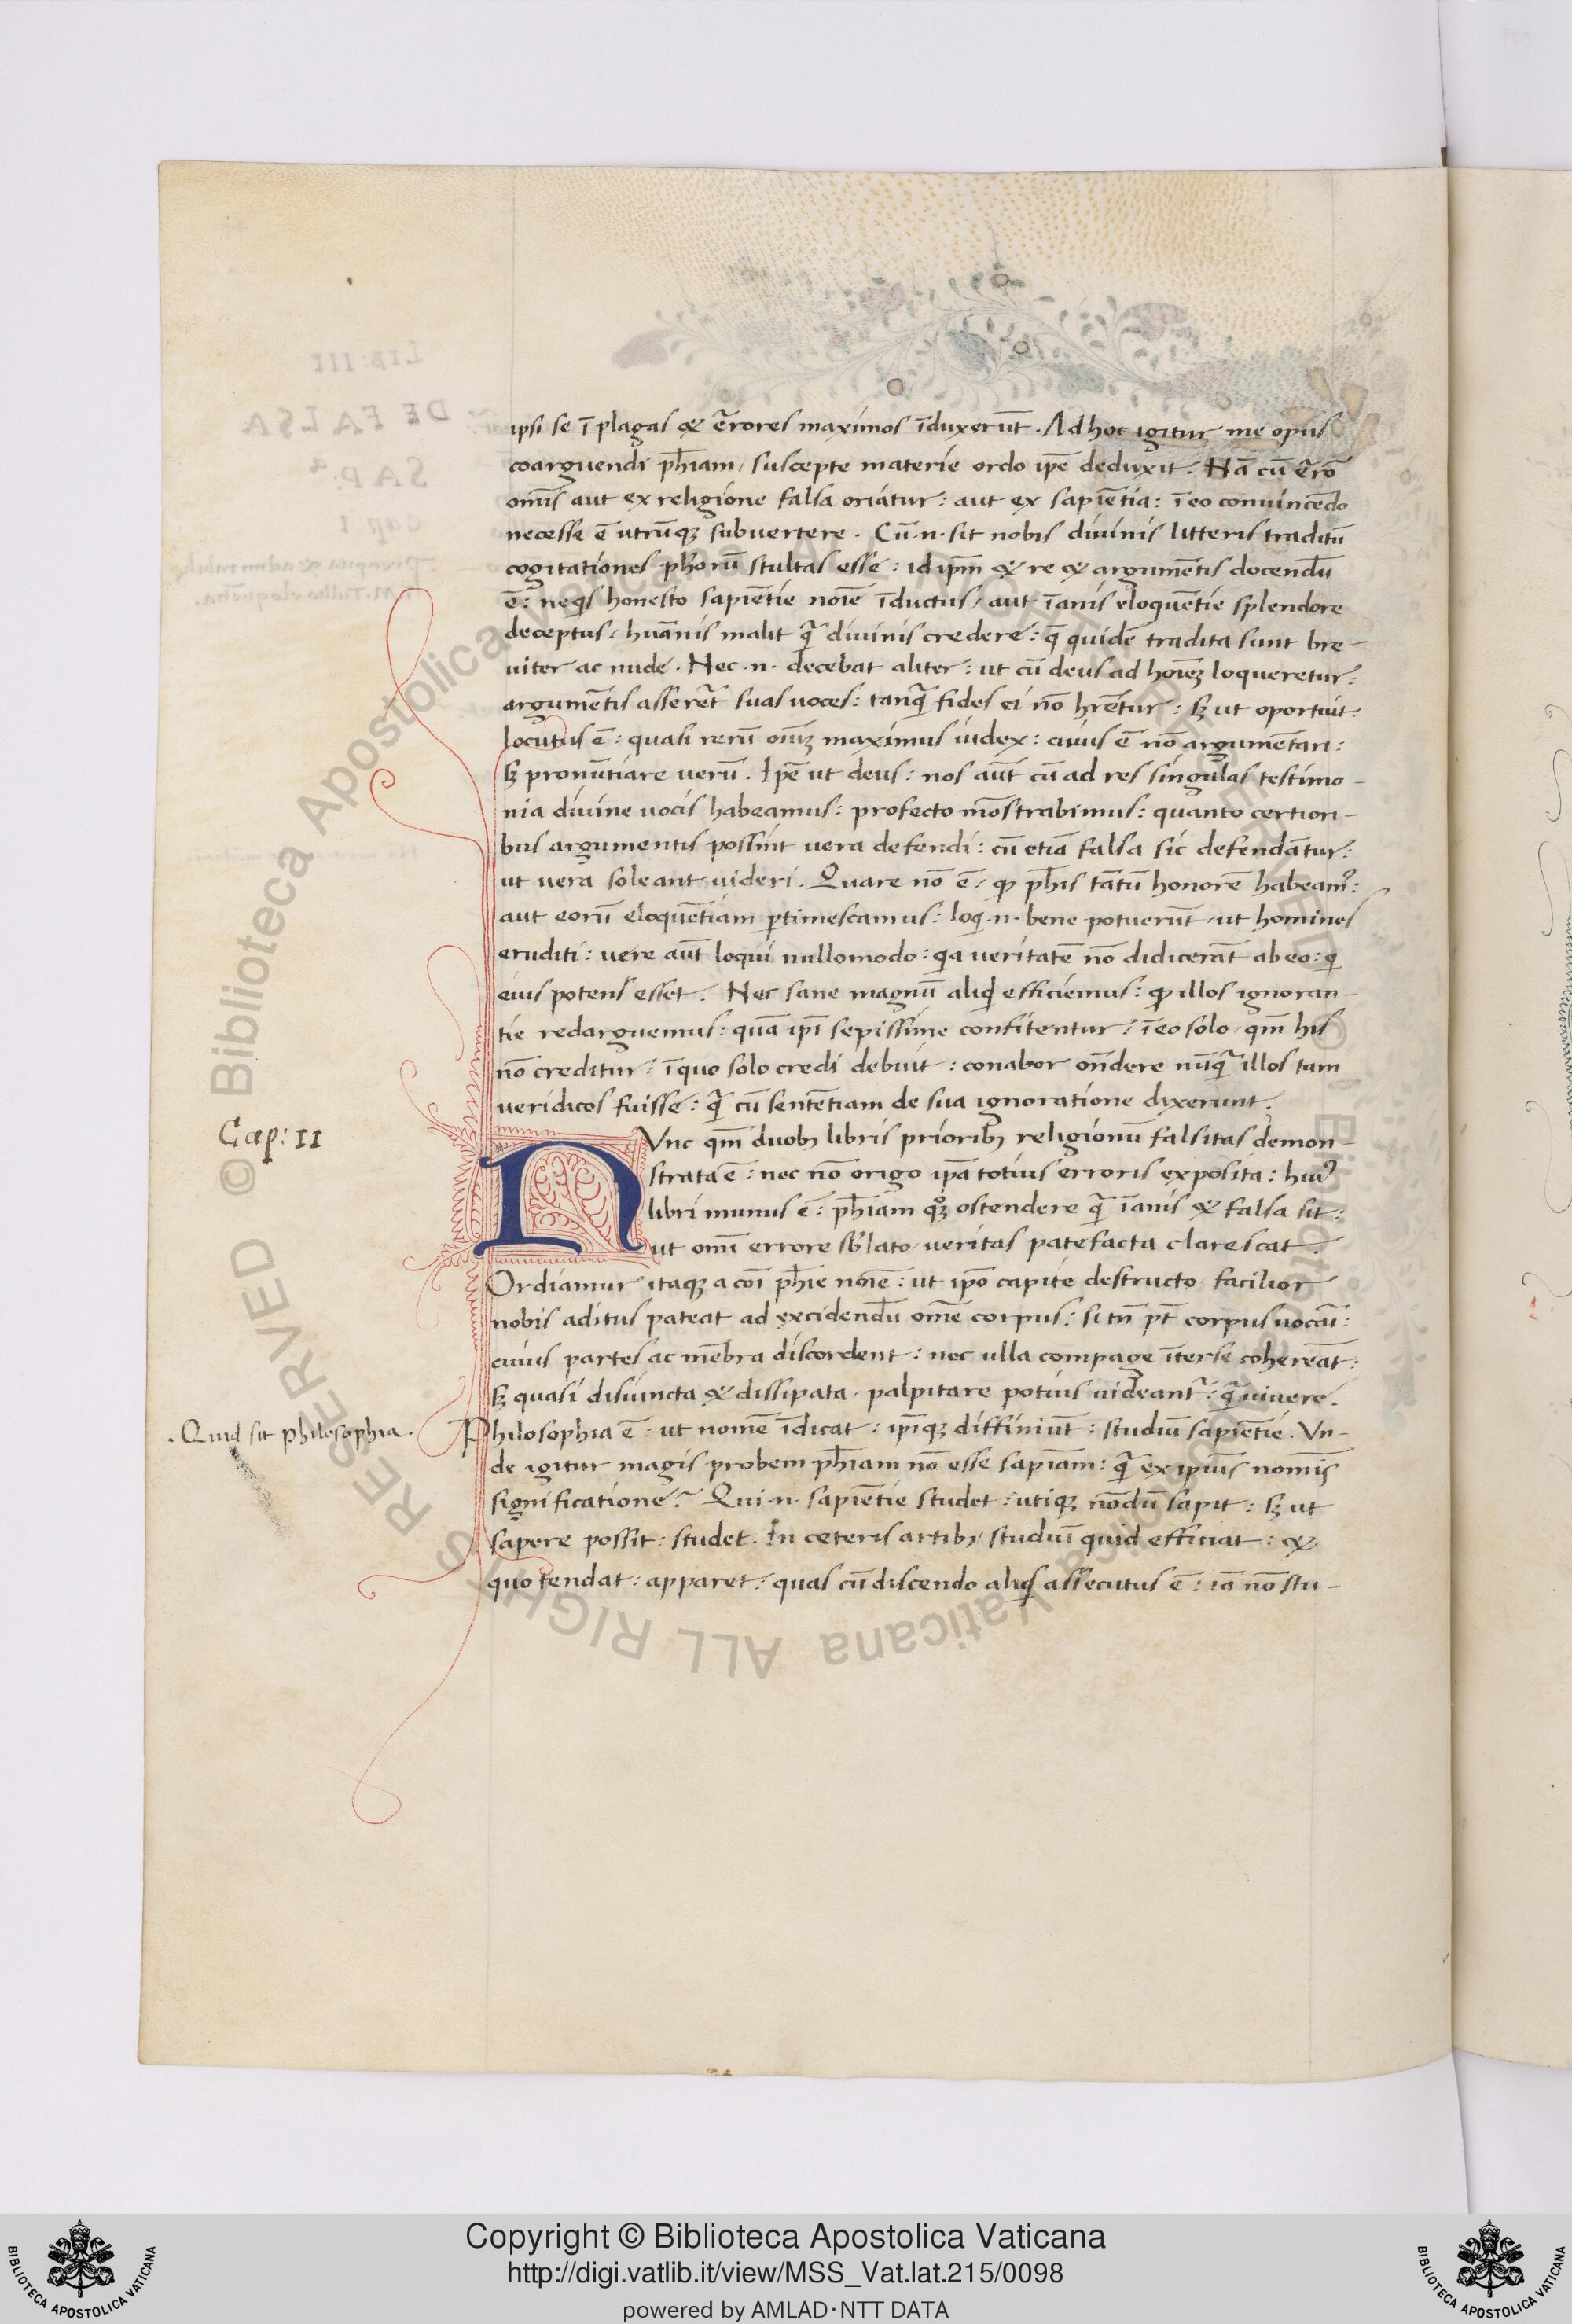 ipsi se ī plagas & ērores maximos īduxerūt. Ad hoc igitur me opus
coarguendi ph̄iam / suscepte materie ordo ip̄e deduxit. Nā cū ērō
om̄is aut ex religione falsa oriatur: aut ex sapiētia: ī eo convincēdo
necesse ē utrūqꝫ subvertere. Cū .n. sit nobis divinis litteris traditū
cogitationes ph̄orū stultas esse: id ip̄m & re & argumētis docendū
ē: neqs honesto sapiētie noīe īductus / aut īanis eloquētie splendore
deceptus / huānis malit q̄ divinis credere: q̄ quidē tradita sunt bre-
viter ac nude. Nec .n. decebat aliter: ut cū deus ad hoīeꝫ loqueretur:
argumētis asserēt suas voces: tanq̄ fides ei nō hr̄etur: sꝫ ut oportuit:
locutus ē: quasi rerū oīuꝫ maximus iudex: cuius ē nō argumētari:
sꝫ pronūtiare verū. Ip̄e ut deus: nos aūt cū ad res singūlas testimo-
nia divine vocis habeamus: profecto mōstrabimus: quanto certiori-
bus argumentis possint vera defendi: cū etiā falsa sic defendātur:
ut vera soleant videri. Quare nō ē: qꝫ ph̄is tātū honorē habeamꝰ:
aut eorū eloquētiam ꝑtimescamus: loq .n. bene potuerūt ut homines
eruditi: vere aūt loqui nullo modo: qa veritatē nō didicerāt ab eo: qi
eius potens esset. Nec sane magnū aliqd efficiemus: qꝫ illos ignoran-
tie redarguemus: quā ip̄i sepissime confitentur: ī eo solo qm̄ his
nō creditur: ī quo solo credi debuit: conabor on̄dere nūq̄ illos tam
veridicos fuisse: q̄ cū sentētiam de sua ignoratione dixerunt.
Cap: II
NVnc qm̄ duobꝫ libris prioribꝫ religionū falsitas demon-
strata ē: nec nō origo ip̄a totius erroris exposita: huiꝰ
libri munus ē: ph̄iam qꝫ ostendere q̄ īanis & falsa sit:
ut om̄i errore sb̄lato veritas patefacta clarescat.
Ordiamur itaqꝫ a coī ph̄ie noīe: ut ip̄o capite destructo facilior
nobis aditus pateat ad excidendū om̄e corpus: si tn̄ pt̄ corpus vocari:
cuius partes ac mēbra discordent: nec ulla compage īter se cohereāt:
sꝫ quasi disiuncta & dissipata palpitare potius videantr: q̄ vivere.
.Quid sit philosophia.
Philosophia ē: ut nomē īdicat: ip̄iqꝫ diffiniūt: studiū sapiētie. Vn-
de igitur magis probem ph̄iam nō esse sapiām: q̄ ex ipius nomis
significatione? Qui .n. sapiētie studet: utiqꝫ nōdū sapit: sꝫ ut
sapere possit: studet. In ceteris artibꝫ studiū quid efficiat: &
quo tendat: apparet: quas cū discendo aliqs assecutus ē: iā nō stu-
Copyright © Biblioteca Apostolica Vaticana
http://digi.vatlib.it/view/MSS_Vat.lat.215/0098
powered by AMLAD·NTT DATA